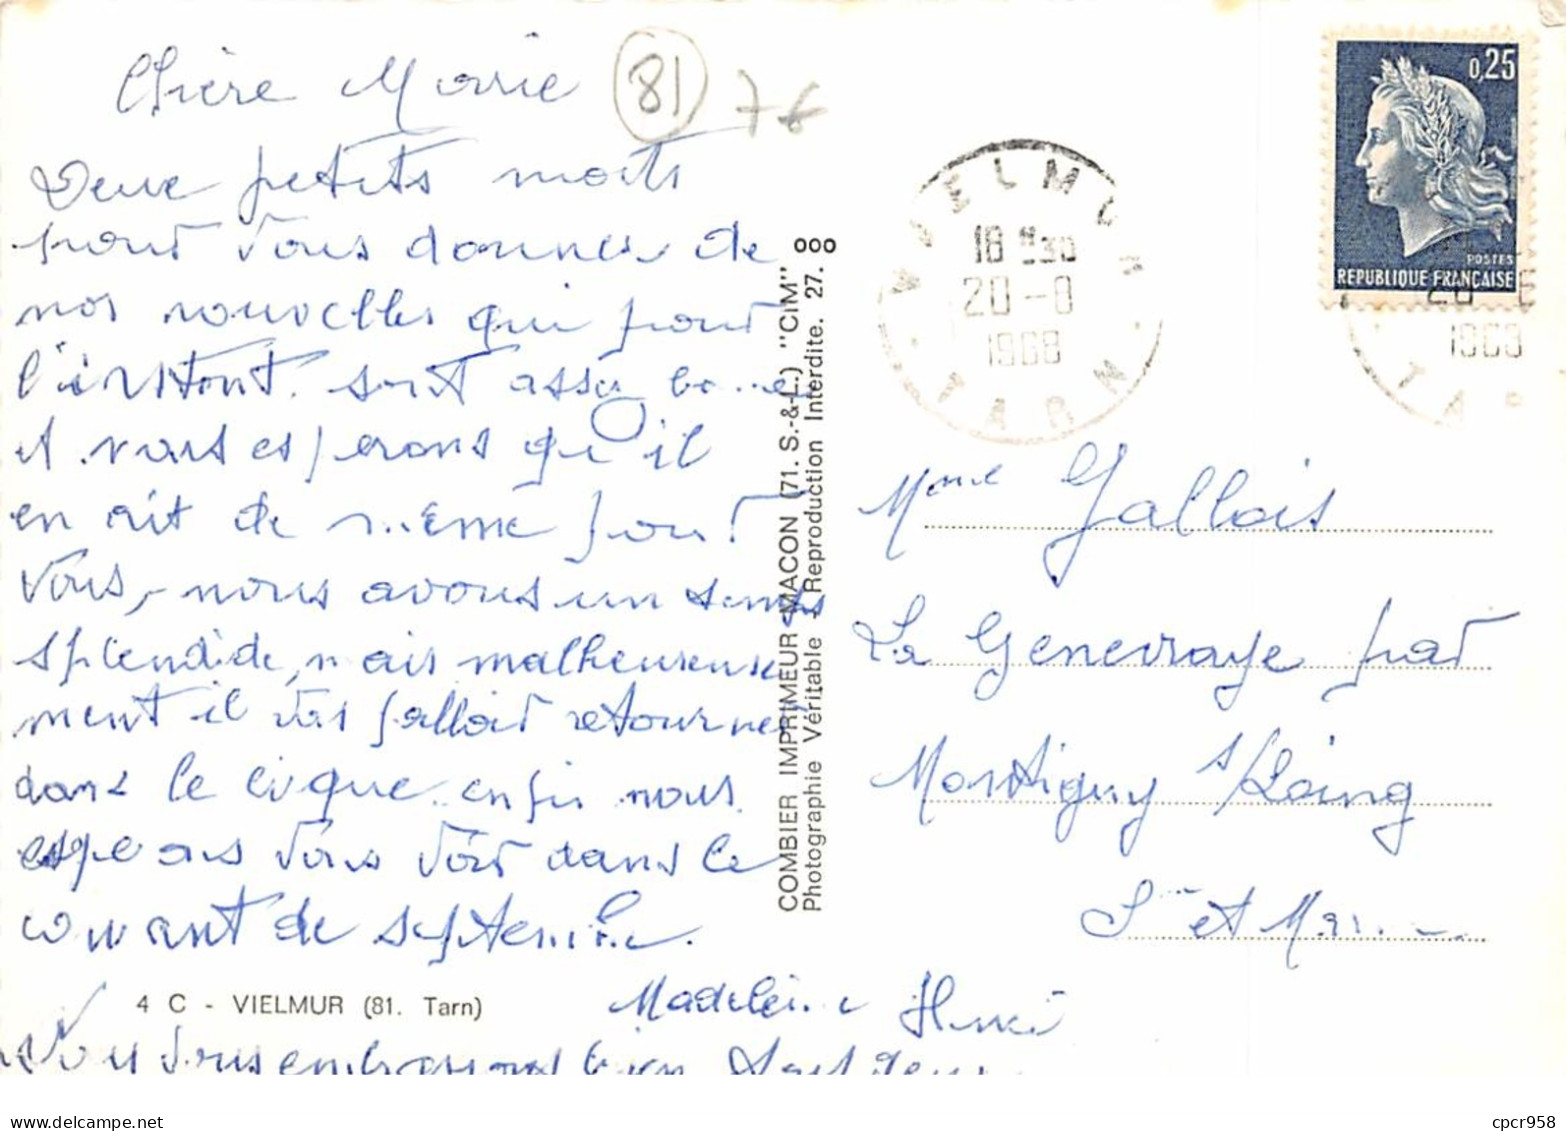 Chère Marie
81
76
Deux petits mots
pour vous donner de
nos nouvelles qui pour
l'instant sont assez bonnes
et nous esperons qu'il
en ait de même pour
vous, nous avons un temps
splendide, mais malheureuse
ment il vas falloir retourner
dans le cirque enfin nous
esperons vous voir dans le
courant de septembre.
4 C - VIELMUR (81. Tarn)
Madeleine Henri
Nous vous embrassons bien tous deux
COMBIER IMPRIMEUR MACON (71. S.-&-L.) "CIM"
Photographie Véritable - Reproduction Interdite. 27.
000
VIELMUR
18 H 30
20-8
1968
TARN
0,25
POSTES
REPUBLIQUE FRANÇAISE
1968
TA
Mme Gallois
La Genevraye par
Montigny s/Loing
S et Marne
cpcr958